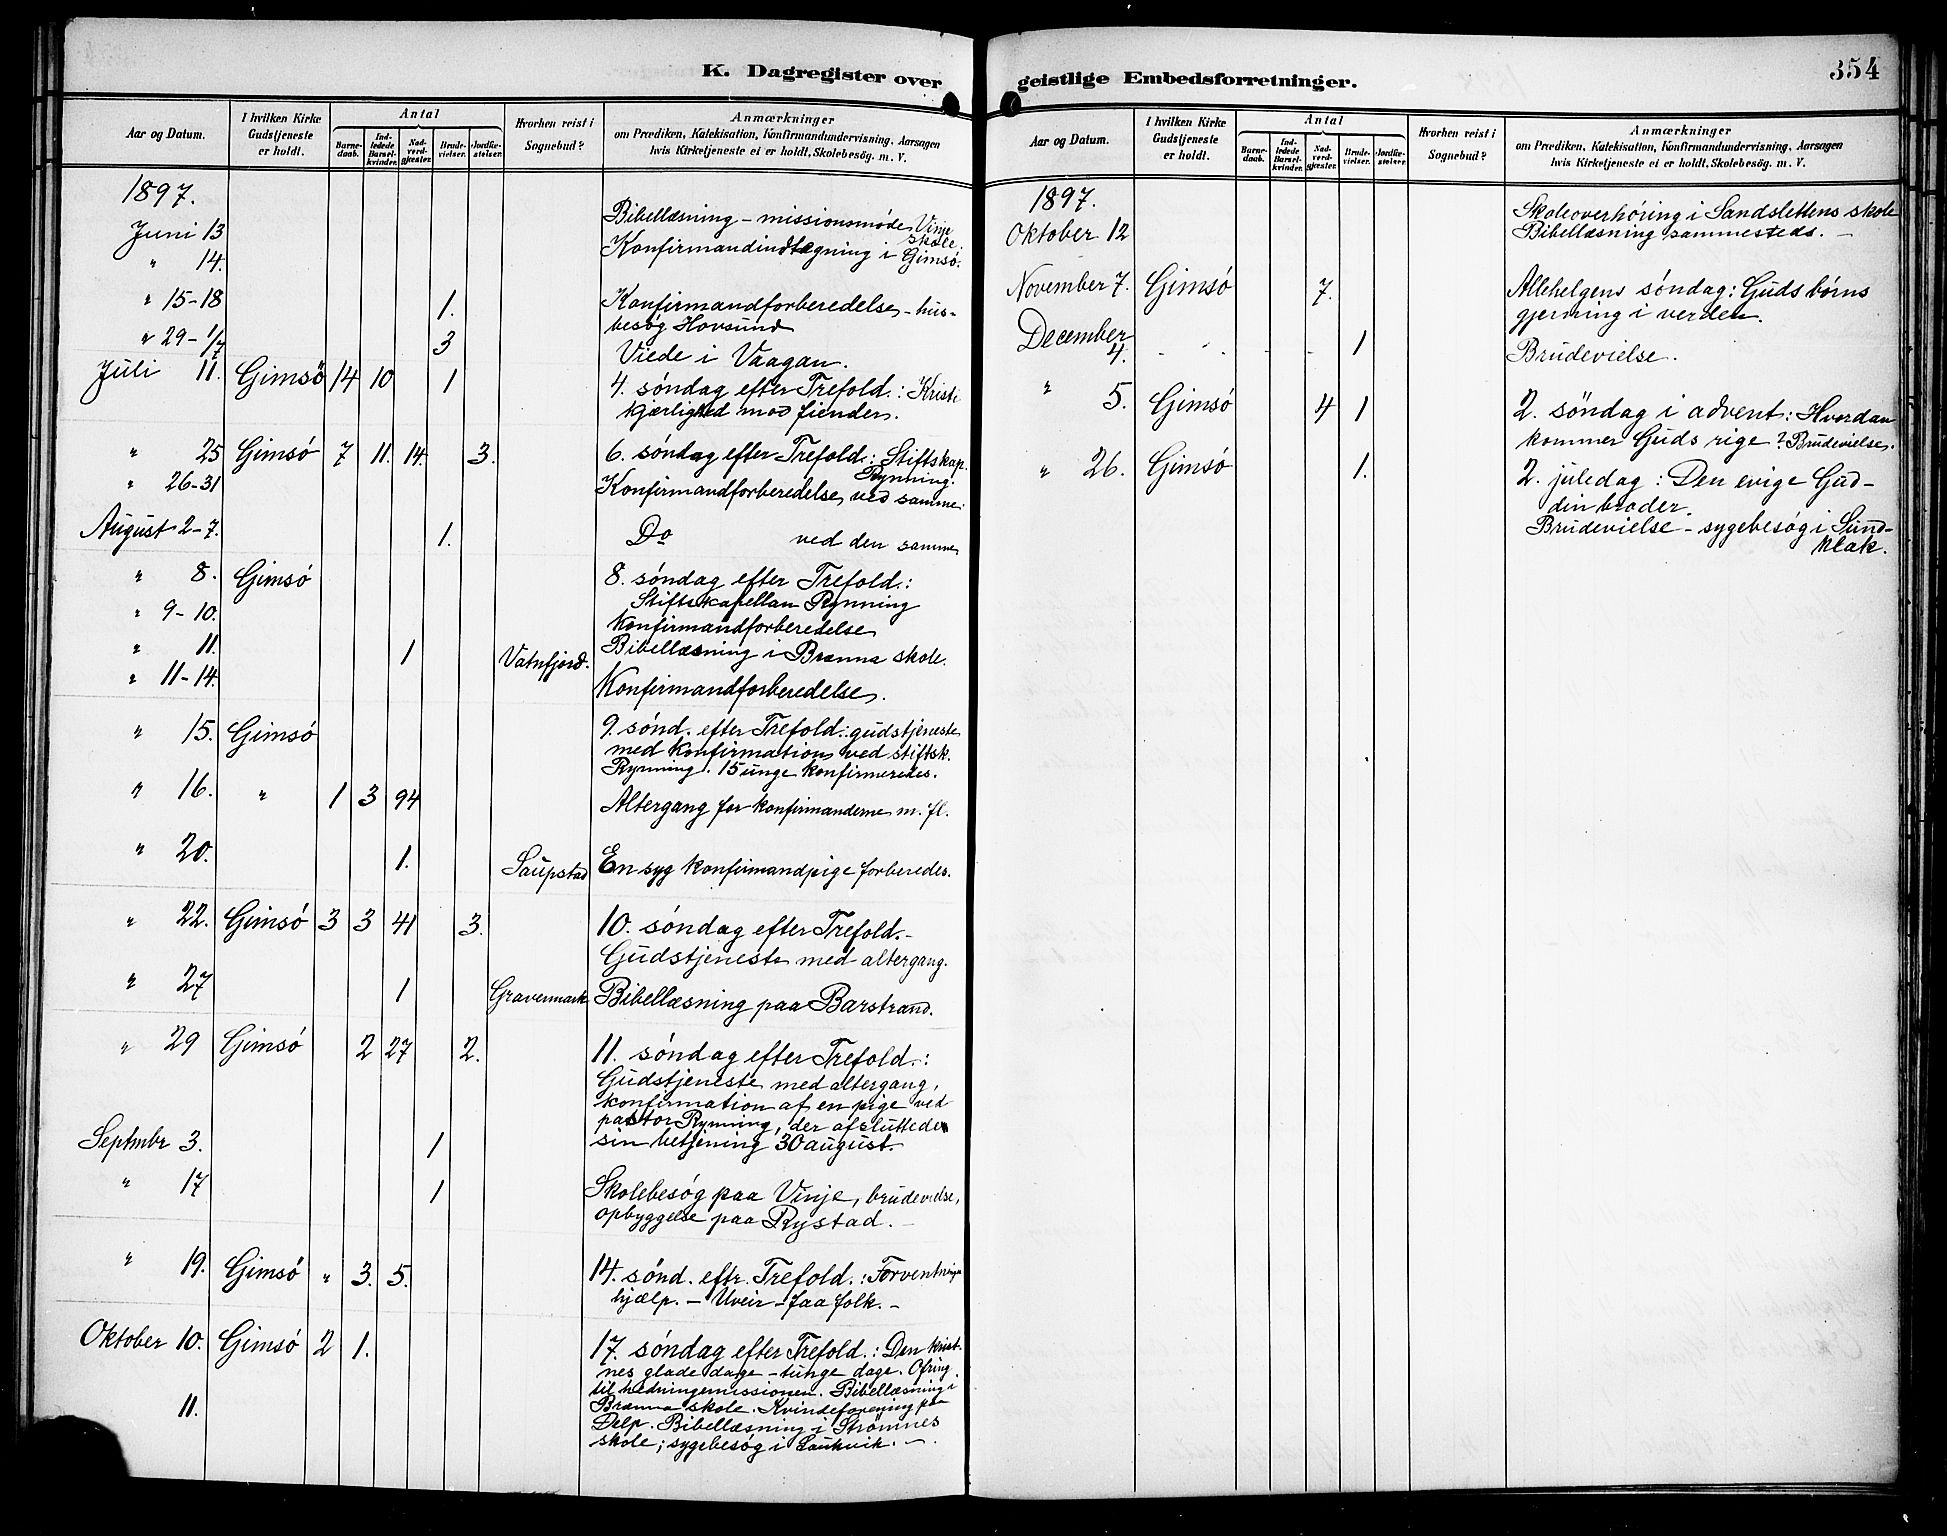 K. Dagregister over
Aar og Datum. I hvilken Kirke Gudstjeneste er holdt. Antal Barnedaab. Indledede Barselkvinder. Nadverdgjester. Brudevielser. Jordfæstelser. Hvorhen reist i Sognebud? Anmærkninger
om Prædiken, Katekisation, Konfirmandundervisning, Aarsagen
hvis Kirketjeneste ei er holdt, Skolebesög m. V.
1897.
Juni 13 Bibellæsning - missionsmøde Vinje skole.
" 14. Konfirmandindtægning i Gimsó.
" 15-18 1. Konfirmandforberedelse - hus-
besøg Hovsund
" 29-1/7 3 Viede i Vaagan.
Juli 11. Gimsö 14 10 1 4. søndag efter Trefold.: Kristi
kjærlighed mod fienden.
" 25 Gimsó 7 11. 14. 3. 6. søndag efter Trefold.: Stiftskap.
Rynning.
" 26-31 Konfirmandforberedelse ved samme.
August 2-7. 1. Do ved den samme
" 8. Gimsó 8. søndag efter Trefold.:
Stiftskapellan Rynning
" 9-10. Konfirmandforberedelse
" 11. 1 Vatnfjord. Bibellæsning i Brænna skole.
" 11-14. Konfirmandforberedelse.
" 15. Gimsó 9. sønd. efter Trefold.: gudstjeneste
med konfirmation ved stiftsk.
Rynning. 15 unge konfirmeredes.
" 16. " 1 3 94 Altergang for konfirmanderne m. fl.
" 20. 1. Saupstad En syg konfirmandpige forberedes.
" 22. Gimsó 3 3 41 3. 10. søndag efter Trefold.-
Gudstjeneste med altergang.
" 27 1 Gravermark Bibellæsning paa Barstrand.
" 29 Gimsó 2 27 2. 11. søndag efter Trefold.:
Gudstjeneste med altergang,
konfirmation af en pige ved
pastor Rynning, der afsluttede
sin betjening 30 august.
Septmbr 3. 1
" 17 1 Skolebesøg paa Vinje, brudevielse,
opbyggelse paa Rystad. -
" 19. Gimsó " 3. 5. 14. sønd. eftr. Trefold.:
hjælp. - Uveir - faa folk. -
Oktober 10. Gimsó 2 1. 17. søndag efter Trefold.: Den krist-
nes glade dage - tunge dage. Ofring
til hedningemissionen. Bibellæsning i
11. Brænna skole. Kvindeforening paa
Delp. Bibellæsning i Strømnes
skole; sygebesøg i Laukvik. -
geistlige Embedsforretninger.
354
Aar og Datum. I hvilken Kirke Gudstjeneste er holdt. Antal Barnedaab. Indledede Barselkvinder. Nadverdgjester. Brudevielser. Jordfæstelser. Hvorhen reist i Sognebud? Anmærkninger
om Prædiken, Katekisation, Konfirmandundervisning, Aarsagen
hvis Kirketjeneste ei er holdt, Skolebesög m. V.
1897.
Oktober 12 Skoleoverhøring i Sandslettens skole
Bibellæsning sammesteds. -
November 7. Gimsó 7. Allehelgens søndag: Guds børns
gjerning i verden.
December 4. 1 Brudevielse.
" 5. Gimsó 4 1 2. søndag i advent: Hvordan
kommer Guds rige? Brudevielse.
" 26. Gimsó 1. 2. juledag: Den evige Gud -
din broder.
Brudevielse - sygebesøg i Sund-
klak.